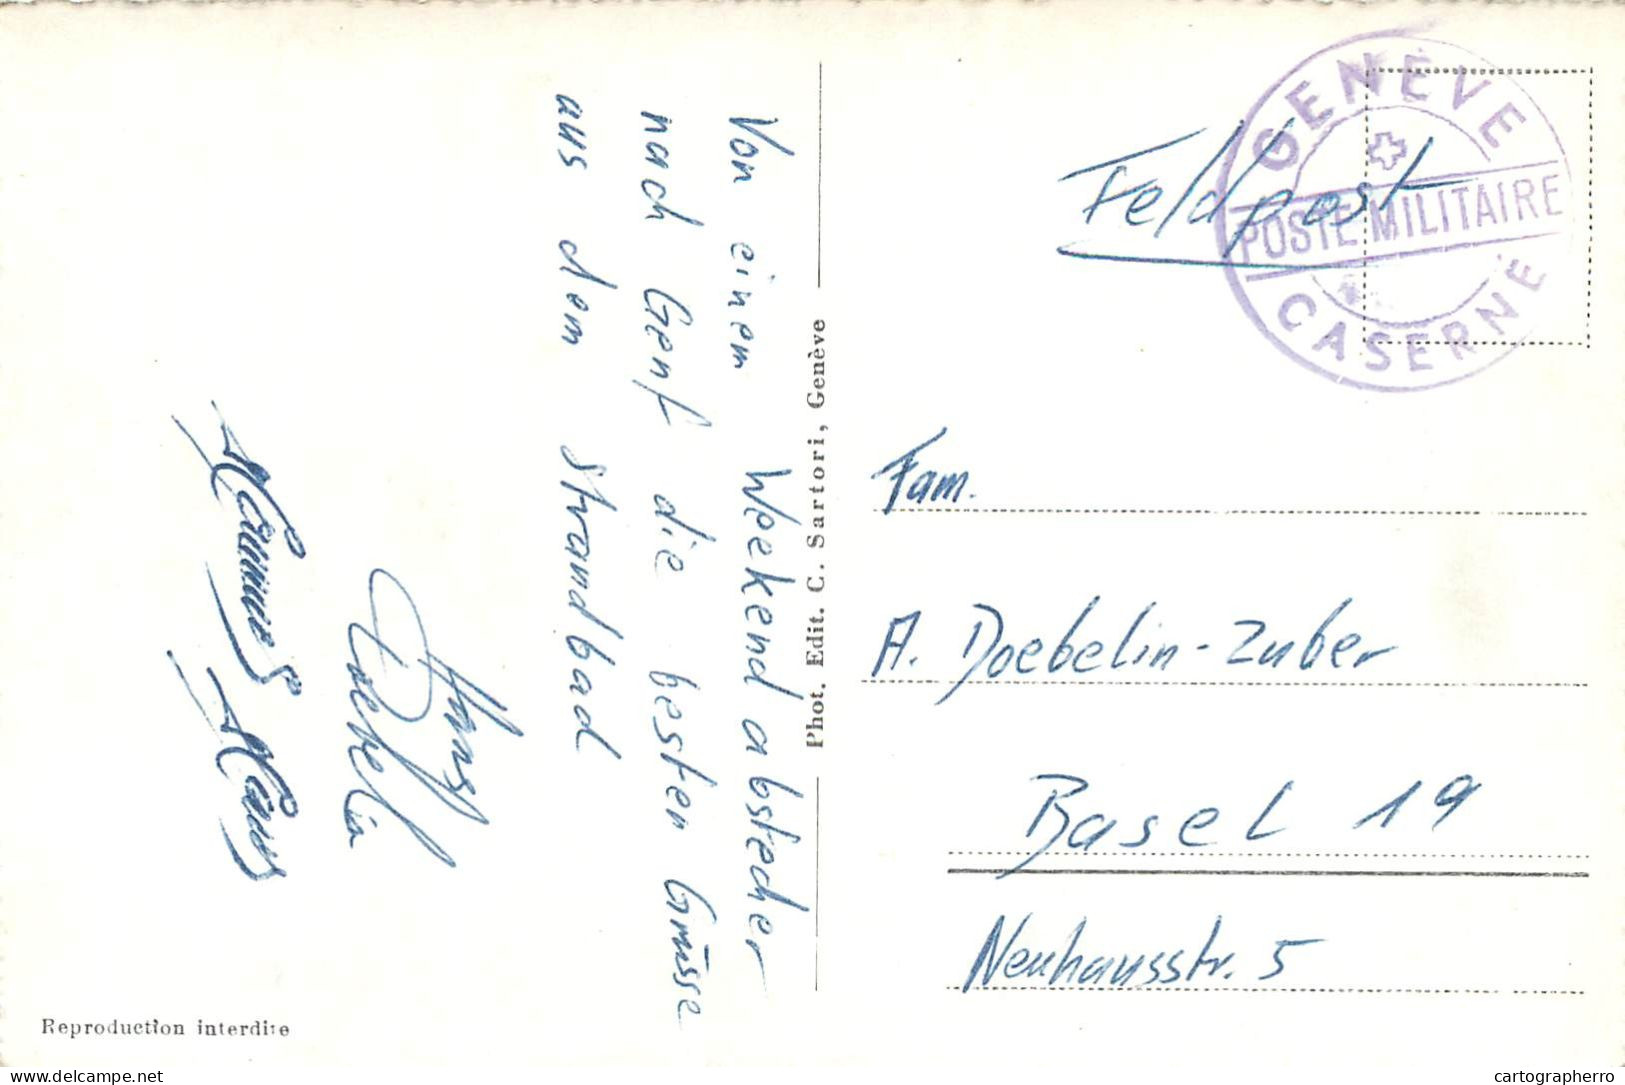 Von einem Weekendabstecher
nach Genf die besten Grüsse
aus dem Strandbad
Hans
Doebelin
Phot. Edit. C. Sartori, Genève
Reproduction interdite
GENÈVE
POSTE MILITAIRE
CASERNE
Feldpost
Fam.
A. Doebelin-Zuber
Basel 19
Neuhausstr. 5
www.delcampe.net
cartographerro